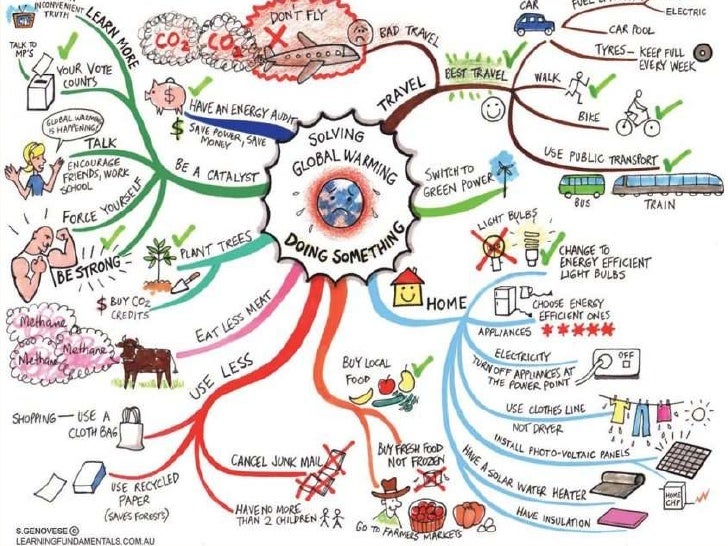 INCONVENIENT
TRUTH
LEARN MORE
TALK TO
MP'S
YOUR VOTE
COUNTS
GLOBAL WARMING
IS HAPPENING!
TALK
ENCOURAGE
FRIENDS, WORK
SCHOOL
FORCE YOURSELF
BE STRONG
BE A CATALYST
$
HAVE AN ENERGY AUDIT
$ SAVE POWER, SAVE
MONEY
CO2
CO2
DON'T FLY
BAD TRAVEL
TRAVEL
BEST TRAVEL
CAR
ELECTRIC
CAR POOL
TYRES – KEEP FULL
EVERY WEEK
WALK
BIKE
USE PUBLIC TRANSPORT
BUS
TRAIN
SOLVING
GLOBAL WARMING
DOING SOMETHING
SWITCH TO
GREEN POWER
PLANT TREES
$ BUY CO2
CREDITS
EAT LESS MEAT
Methane
Methane
Methane
USE LESS
SHOPPING – USE A
CLOTH BAG
USE RECYCLED
PAPER
(SAVES FORESTS)
CANCEL JUNK MAIL
HAVE NO MORE
THAN 2 CHILDREN
BUY LOCAL
FOOD
BUY FRESH FOOD
NOT FROZEN
GO TO FARMERS MARKETS
HOME
LIGHT BULBS
CHANGE TO
ENERGY EFFICIENT
LIGHT BULBS
CHOOSE ENERGY
EFFICIENT ONES
APPLIANCES
ELECTRICITY
TURN OFF APPLIANCES AT
THE POWER POINT
OFF
USE CLOTHES LINE
NOT DRYER
INSTALL PHOTO-VOLTAIC PANELS
HAVE A SOLAR WATER HEATER
HOME
CHP
HAVE INSULATION
S.GENOVESE ©
LEARNINGFUNDAMENTALS.COM.AU